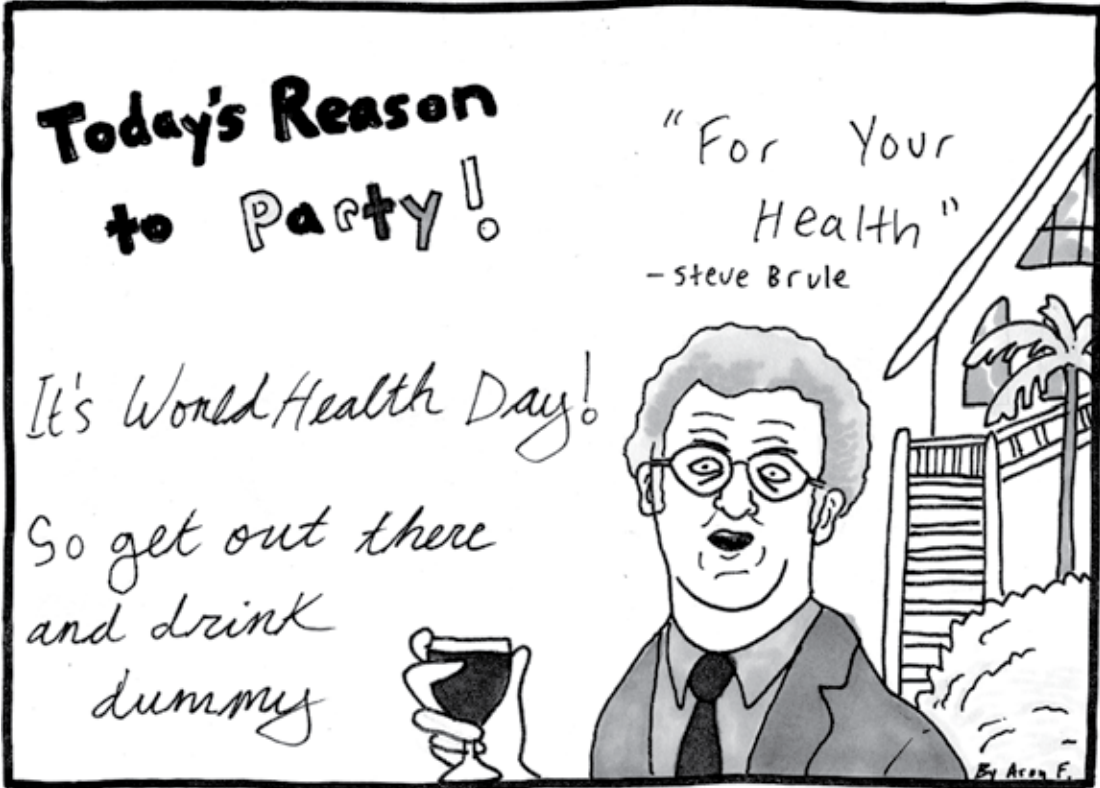 Today's Reason
to Party!
"For Your
Health"
- Steve Brule
It's World Health Day!
So get out there
and drink
dummy
By Aron F.